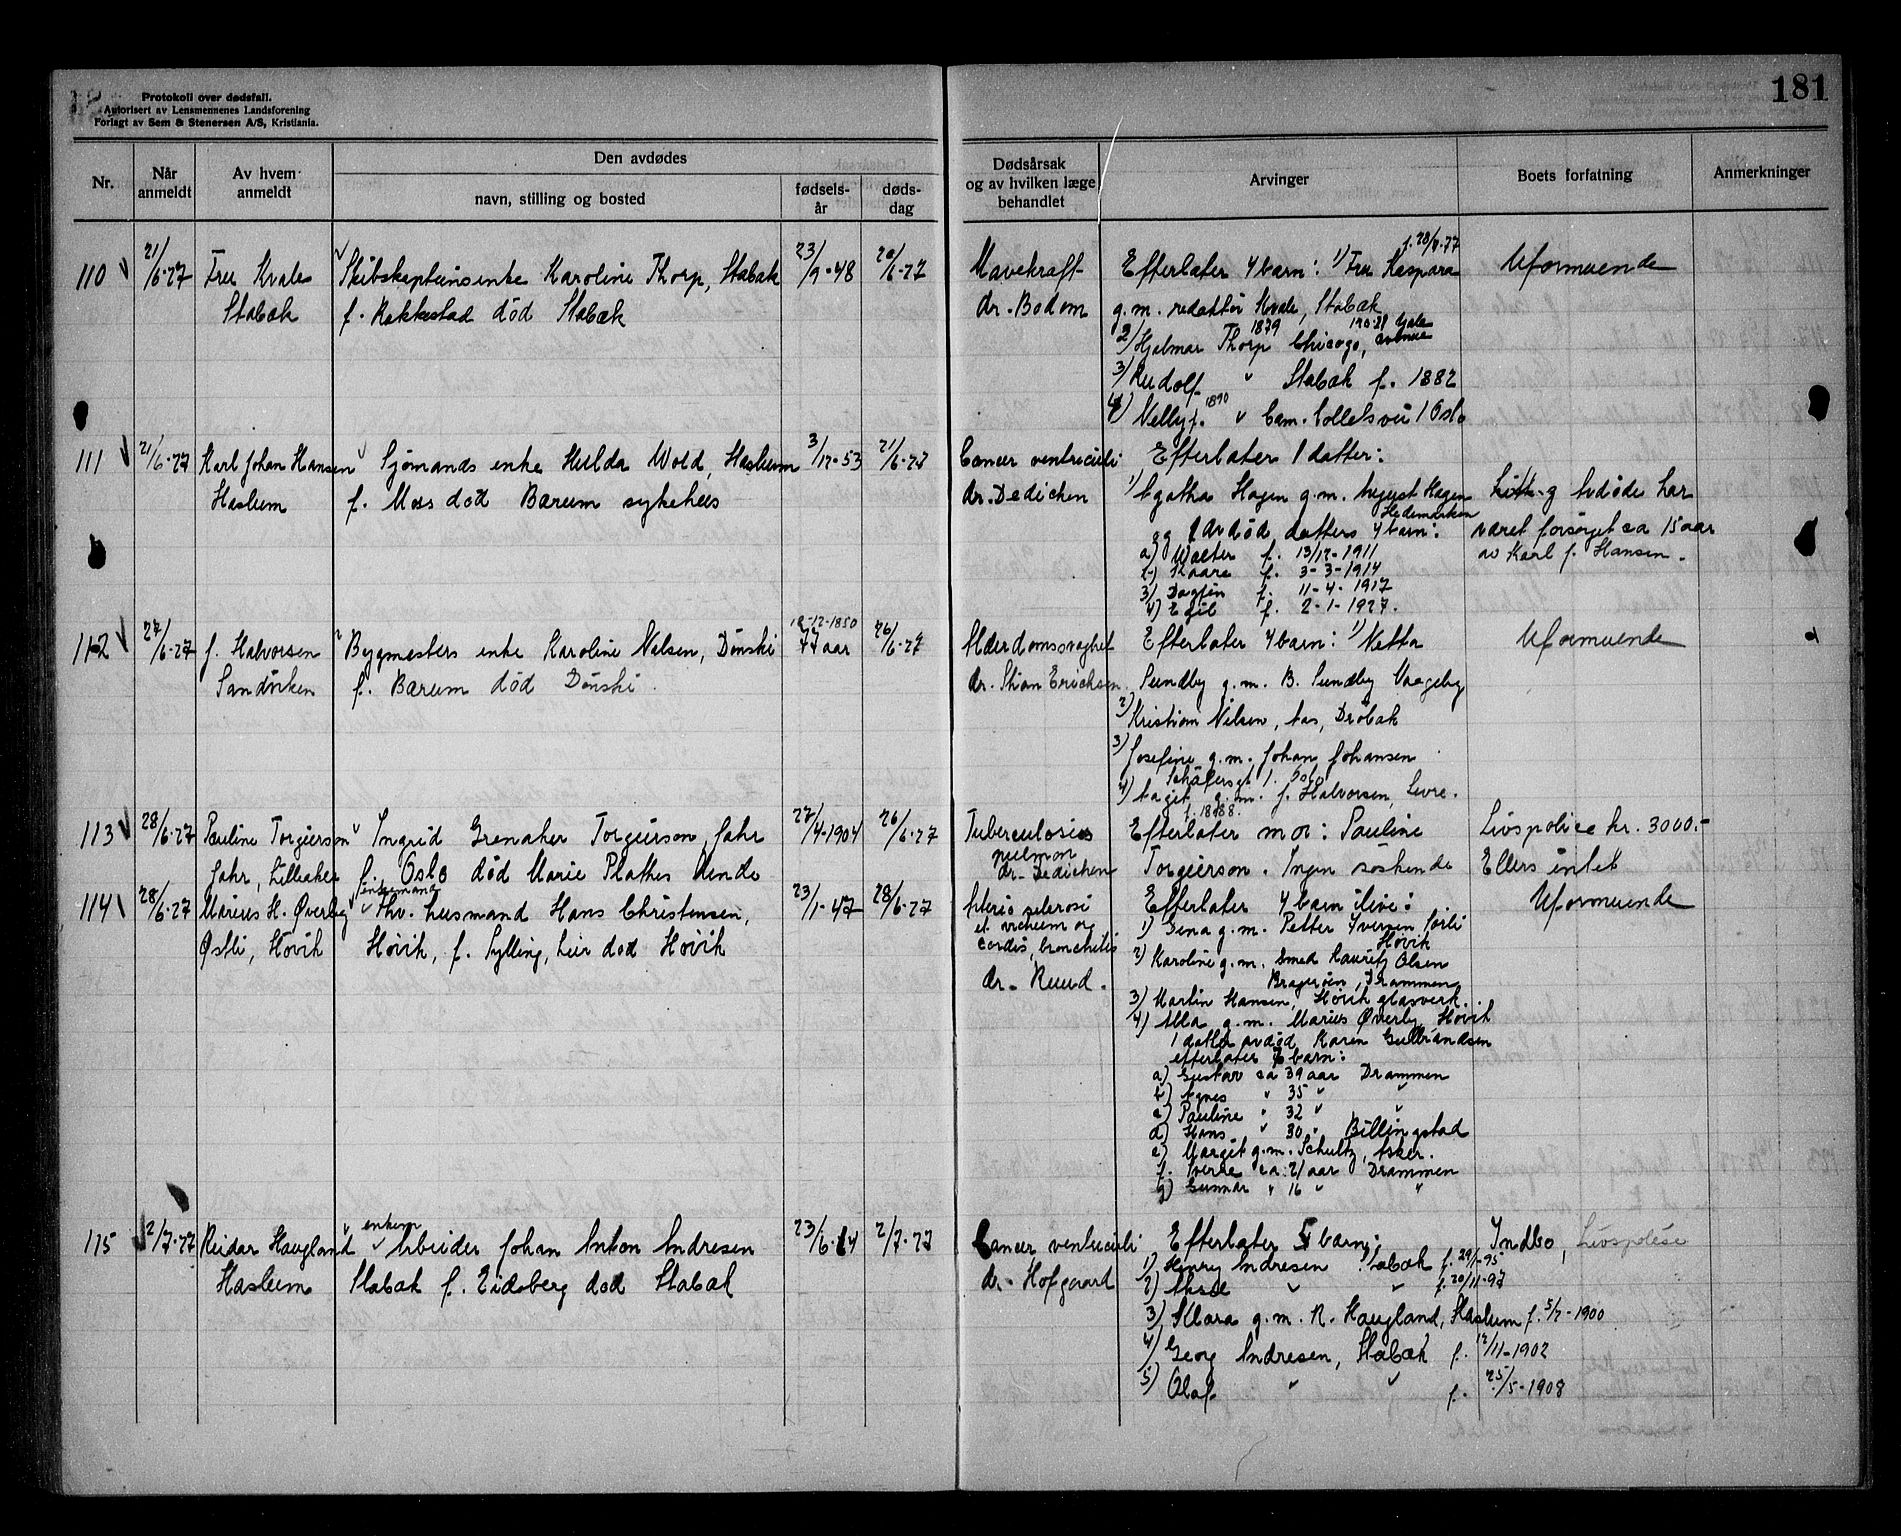 181
Protokoll over dødsfall.
Autorisert av Lensmennenes Landsforening
Forlagt av Sem & Stenersen A/S, Kristiania.
Nr.
Når anmeldt
Av hvem anmeldt
Den avdødes
navn, stilling og bosted
fødsels-år
døds-dag
Dødsårsak og av hvilken læge behandlet
Arvinger
Boets forfatning
Anmerkninger
110 21/6-27 Fru Kvale Skibskapteinsenke Karoline Thorp, Stabæk 23/9-48 20/6-27
Stabæk f. Rakkestad død Stabæk
Mavekræft Efterlater 4 barn: 1) Fru Kaspara Uformuende
f. 28/9-77
dr. Bodom g.m. redaktør Kvale, Stabæk
2) Hjalmar Thorp 1879 Chicago, Yale avenue
3) Rudolf " Stabæk f. 1882
4) Nelly f. 1890 " Cam. Colletsvei 1 Oslo
111 21/6-27 Karl Johan Hansen Sjømands enke Hulda Wold, Haslum 3/12-53 21/6-27
Haslum f. Moss død Bærum sykehus
Cancer ventriculi Efterlater 1 datter:
dr. Dedichen 1) Agatha Hagen g.m. August Hagen Hedemarken
Avdøde har
og 1 avdød datters 4 barn: været forsørget ca 15 aar
a) Walter f. 13/12-1911 av Karl J. Hansen.
b) Kaare f. 3-3-1914
3) Dagfin f. 11-4-1917
4) Egil f. 2-1-1927.
112 27/6-27 J. Halvorsen Bygmesters enke Karoline Nilsen, Dønski 77 aar 26/6-27
Sandviken f. Bærum død Dønski
Alderdomssvaghet Efterlater 4 barn: 1) Netta Uformuende
dr. Stian Erichsen Sundby g.m. B. Sundby Vaageby
2) Kristian Nilsen, Aas, Drøbak
3) Josefine g.m. Johan Johansen
Schäfersgt 1. Oslo
4) Aagot g.m. J. Halvorsen, Levre.
f. 1888.
113 28/6-27 Pauline Torgierson Ingrid Grenaker Torgierson, Jahr 27/4-1904 26/6-27
Jahr, Lilleaker f. Oslo død Marie Plathes Minde
Tuberculosis Efterlater mor: Pauline Livspolice kr. 3000.-
pulmon
dr. Dedichen Torgierson. Ingen søskende Ellers intet
114 28/6-27 Marius H. Øverby enkemand Fhv. husmand Hans Christensen, 23/1-47 28/6-27
Østli, Høvik Høvik, f. Sylling, Lier død Høvik
Arterio sclerosi Efterlater 4 barn ilive: Uformuende
cordis, bronchitis
dr. Ruud.
1) Gina g.m. Petter Iversen Sørli Høvik
2) Karoline g.m. smed Lauritz Olsen
Bragerøen, Drammen
3) Martin Hansen, Høvik glasverk.
4) Alla g.m. Marius Øverby, Høvik
1 datter avdød Karen Gulbrandsen
efterlater 7 barn:
a) Gustav ca 39 aar Drammen
b) Agnes " 35 " "
c) Pauline " 32 " "
d) Hans " 30 " Billingstad
e) Margit g.m. Schultz, Asker.
f. Sverre ca: 21 aar Drammen
g) Gunnar " 16 " "
115 2/7-27 Reidar Haugland enkem Arbeider Johan Anton Andresen 23/6-64 2/7-27
Haslum Stabæk f. Eidsberg død Stabæk
Cancer ventriculi Efterlater 5 barn: Indbo, Livspolise
dr. Hofgaard 1) Henry Andresen Stabæk f. 29/1-95
2) Aksel " " f. 20/11-97
3) Klara g.m. R. Haugland, Haslum f. 5/7-1900
4) Georg Andresen, Stabæk f. 12/11-1902
5) Olaf " " f. 25/5-1908